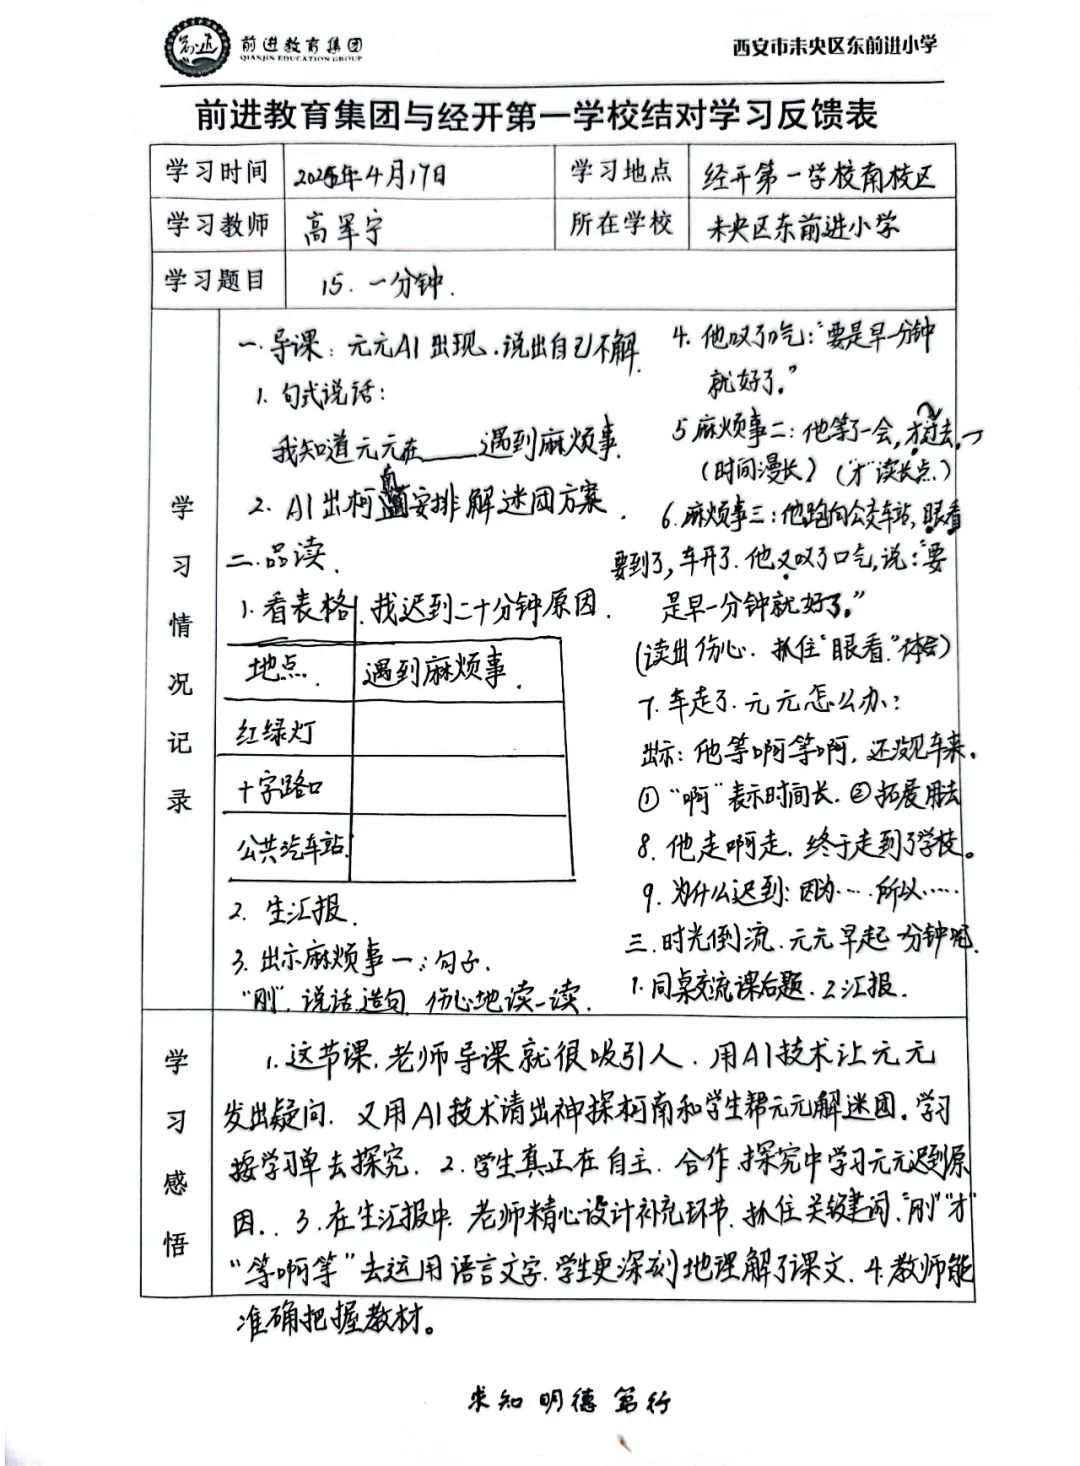 前进教育集团
QIANJIN EDUCATION GROUP
西安市未央区东前进小学
前进教育集团与经开第一学校结对学习反馈表
学习时间 2025年4月17日 学习地点 经开第一学校南校区
学习教师 高军宁 所在学校 未央区东前进小学
学习题目 15. 一分钟.
学习情况记录
一.导课: 元元AI出现.说出自己不解.
1. 句式说话:
我知道元元在____遇到麻烦事.
2. AI出柯南安排解迷团方案.
二.品读.
1. 看表格,找迟到二十分钟原因.
地点. 遇到麻烦事.
红绿灯
十字路口
公共汽车站.
2. 生汇报.
3. 出示麻烦事一:句子.
“刚”.说话.造句.伤心地读一读.
4. 他叹了口气:“要是早一分钟
就好了。”
5 麻烦事二: 他等了一会,才过去.
(时间漫长) (“才”读长点.)
6. 麻烦事三: 他跑向公交车站,眼看
要到了,车开了.他又叹了口气,说:“要
是早一分钟就好了。”
(读出伤心.抓住“眼看”体会)
7. 车走了.元元怎么办:
出示: 他等啊等啊,还没见车来。
①“啊”表示时间长.②拓展用法
8. 他走啊走,终于走到了学校。
9. 为什么迟到: 因为……所以……
三.时光倒流.元元早起一分钟呢.
1. 同桌交流课后题. 2汇报.
学习感悟
1. 这节课,老师导课就很吸引人.用AI技术让元元
发出疑问.又用AI技术请出神探柯南和学生帮元元解迷团。学习
按学习单去探究. 2. 学生真正在自主.合作.探究中学习元元迟到原
因.. 3. 在生汇报中.老师精心设计补充环节.抓住关键词.“刚”“才”
“等啊等”去运用语言文字.学生更深刻地理解了课文. 4. 教师能
准确把握教材。
求知 明德 笃行